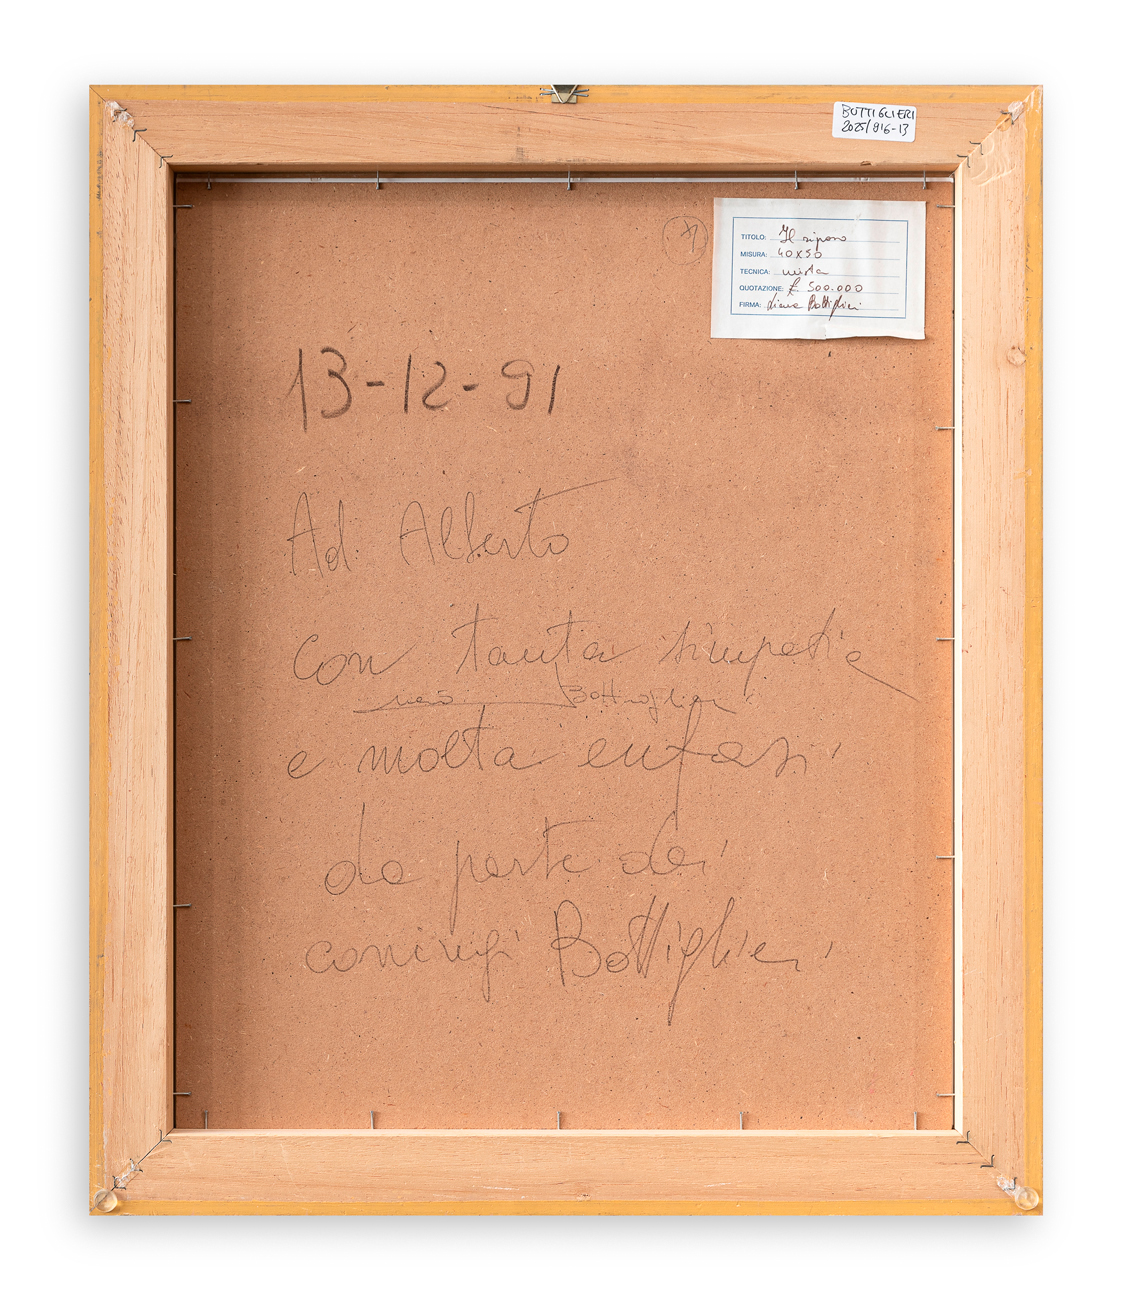 BUTTIGLIERI
2025/916-13
TITOLO: Il riposo
MISURA: 40x50
TECNICA: mista
QUOTAZIONE: £ 500.000
FIRMA: Bottiglieri
13-12-91
Ad Alberto
con tanta simpatia
Bottiglieri
e molta enfasi
da parte dei
coniugi Bottiglieri